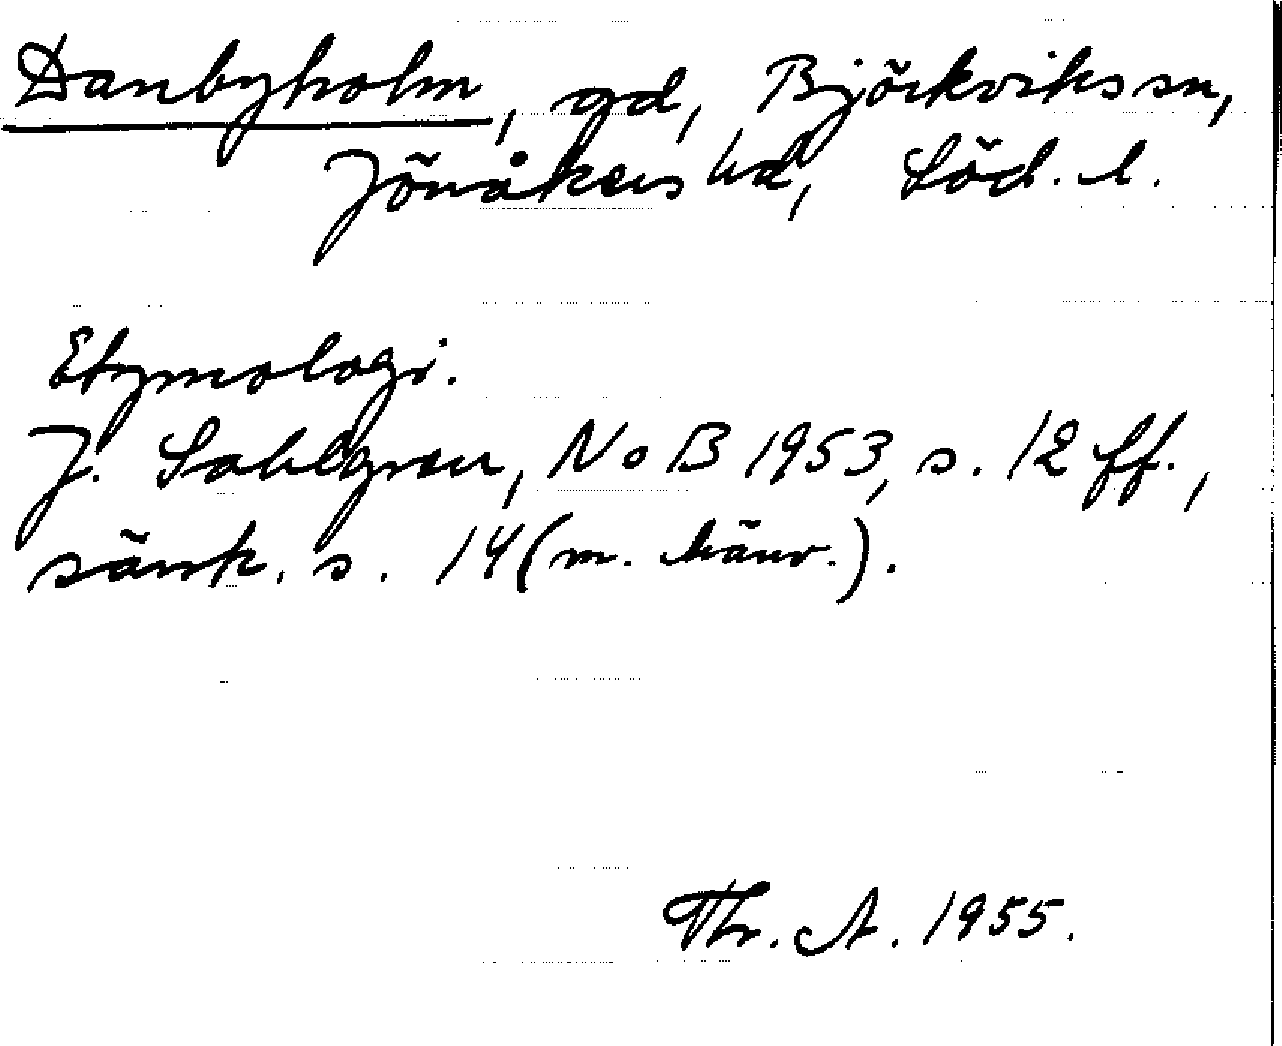 Danbyholm, gd, Björkviks sn,
Jönåkers hd, Söd. l.
Etymologi.
J. Sahlgren, NoB 1953, s. 12 ff.,
särsk. s. 14 (m. hänv.).
Thr. A. 1955.